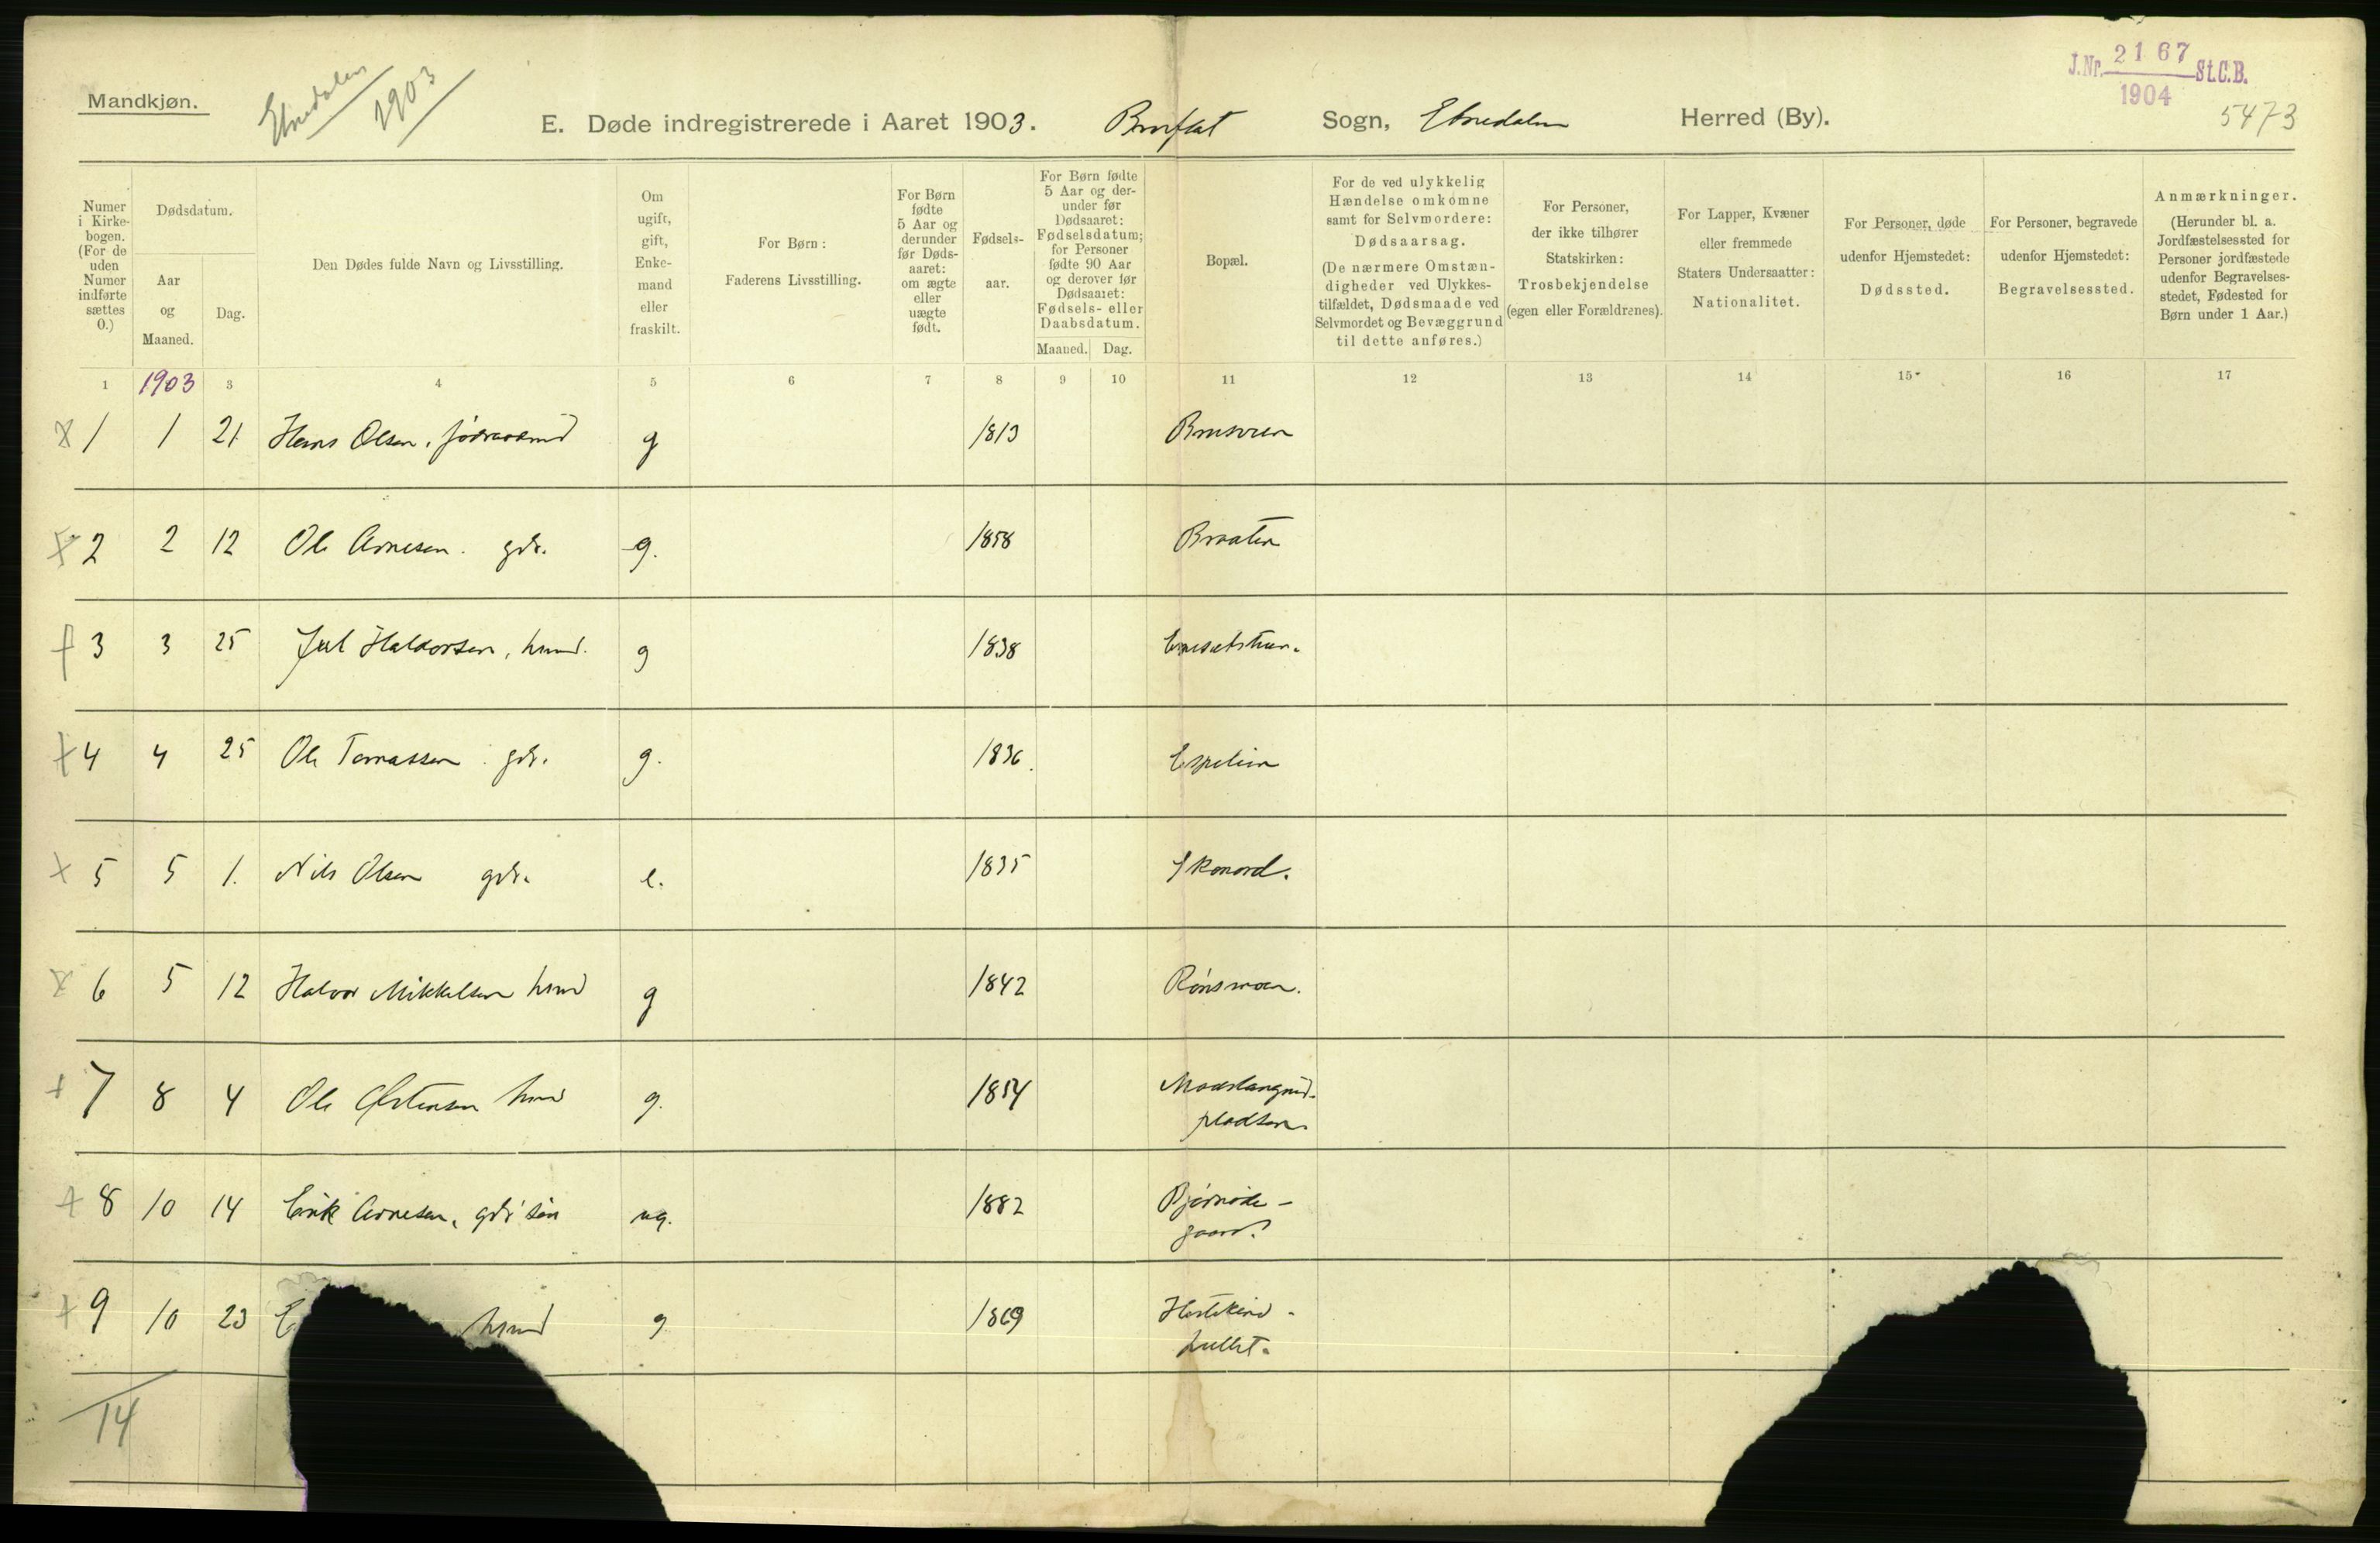 J.Nr. 2167 St.C.B.
1904
5473
Mandkjøn.
Etnedalen
1903
E. Døde indregistrerede i Aaret 1903. Bruflat Sogn, Etnedalen Herred (By).
Numer i Kirkebogen. (For de uden Numer indførte sættes 0.)
Dødsdatum.
Aar og Maaned.
Dag.
Den Dødes fulde Navn og Livsstilling.
Om ugift, gift, Enkemand eller fraskilt.
For Børn: Faderens Livsstilling.
For Børn fødte 5 Aar og derunder før Dødsaaret: om ægte eller uægte født.
Fødselsaar.
For Børn fødte 5 Aar og derunder før Dødsaaret: Fødselsdatum; for Personer fødte 90 Aar og derover før Dødsaaret: Fødsels- eller Daabsdatum.
Maaned. Dag.
Bopæl.
For de ved ulykkelig Hændelse omkomne samt for Selvmordere: Dødsaarsag. (De nærmere Omstændigheder ved Ulykkestilfældet, Dødsmaade ved Selvmordet og Bevæggrund til dette anføres.)
For Personer, der ikke tilhører Statskirken: Trosbekjendelse (egen eller Forældrenes).
For Lapper, Kvæner eller fremmede Staters Undersaatter: Nationalitet.
For Personer, døde udenfor Hjemstedet: Dødssted.
For Personer, begravede udenfor Hjemstedet: Begravelsessted.
Anmærkninger. (Herunder bl. a. Jordfæstelsessted for Personer jordfæstede udenfor Begravelsesstedet, Fødested for Børn under 1 Aar.)
1 1903 3 4 5 6 7 8 9 10 11 12 13 14 15 16 17
1 1 21 Hans Olsen, føderaadsmd g 1813
2 2 12 Ole Arnesen. gdr. g. 1858 Braaten
3 3 25 Jul Haldorsen, husmd. g 1838
4 4 25 Ole Tomassen gdr. g. 1836. Espelien
5 5 1. Nils Olsen gdr. e. 1835 Skonord.
6 5 12 Halvor Mikkelsen husmd g 1842 Rønsmoen.
7 8 4 Ole Østensen husmd g. 1854
pladsen.
8 10 14 Erik Arnesen, gdr' søn ug. 1882
gaard.
9 10 23 E husmd g 1869
hullet.
14